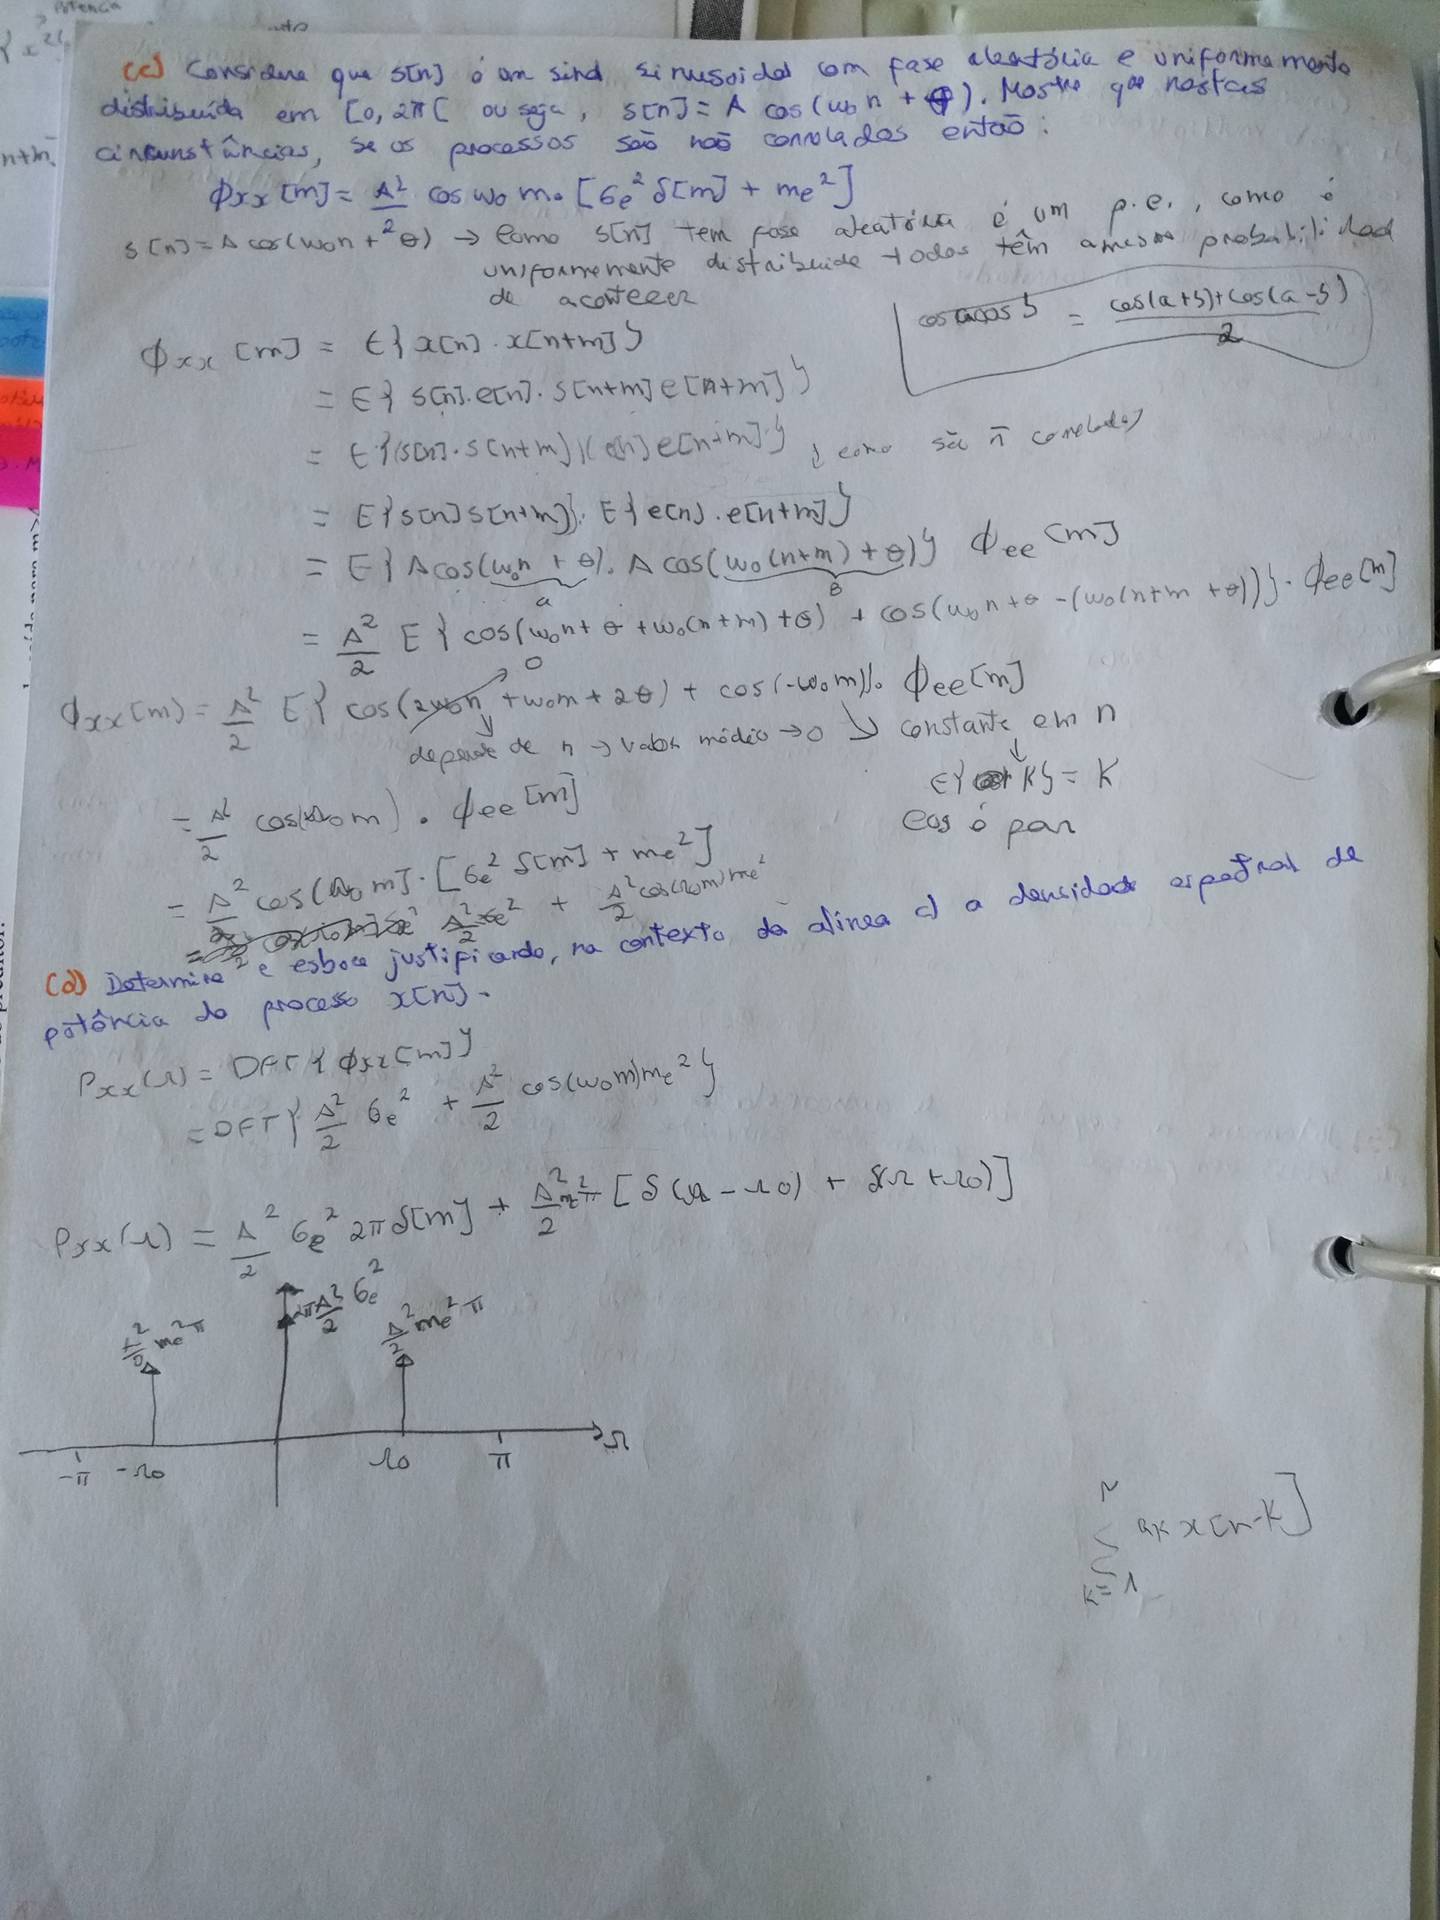 Potência
{x²[
n+m.
(c) Considere que s[n] é um sinal sinusoidal com fase aleatória e uniformemente
distribuída em [0, 2π[ ou seja, s[n] = A cos(ω₀n + θ). Mostre que nestas
circunstâncias, se os processos são não correlados então:
ϕxx[m] = A²/2 cos ω₀ m. [σe² δ[m] + me²]
s[n] = A cos(ω₀n + θ) → Como s[n] tem fase aleatória é um p.e., como é
uniformemente distribuida todos têm a mesma probabilidad
de acontecer
cos a cos b = (cos(a+b)+cos(a-b))/2
ϕxx[m] = E{x[n] . x[n+m]}
= E{s[n].e[n]. s[n+m] e[n+m]}
= E{(s[n]. s[n+m])(e[n] e[n+m]} ↓ como são ñ correlados
= E{s[n] s[n+m]}. E{e[n].e[n+m]}
= E{A cos(ω₀n + θ). A cos(ω₀(n+m) + θ)} ϕee[m]
a B
= A²/2 E{cos(ω₀n + θ + ω₀(n+m) + θ) + cos(ω₀n + θ - (ω₀(n+m + θ))}. ϕee[m]
0
ϕxx[m] = A²/2 E{cos(2ω₀n + ω₀m + 2θ) + cos(-ω₀m)}. ϕee[m]
depende de n → valor médio → 0 ↘ constante em n
E{K} = K
= A²/2 cos(Ω₀m) . ϕee[m]
cos é par
= A²/2 cos(Ω₀ m]. [σe² δ[m] + me²]
= A²/2 σe² + A²/2 cos(Ω₀m) me²
(d) Determine e esboce justificando, no contexto da alínea c) a densidade espectral de
potência do processo x[n].
Pxx(Ω) = DFT{ϕxx[m]}
= DFT{A²/2 σe² + A²/2 cos(ω₀m) me²}
Pxx(Ω) = A²/2 σe² 2π δ[m] + A²/2 me² π [δ(Ω - Ω₀) + δ(Ω + Ω₀)]
2π A²/2 σe²
A²/2 me² π
A²/2 me² π
-π -Ω₀ Ω₀ π Ω
N
Σ ak x[n-k]
k=1